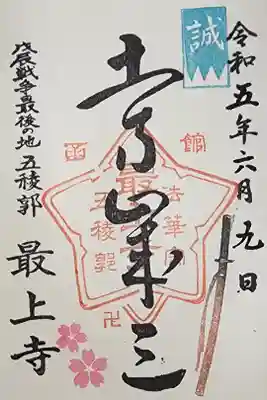 誠
令和五年六月九日
土方歳三
函館
法華宗
五稜郭
卍
戊辰戦争最後の地 五稜郭
最上寺